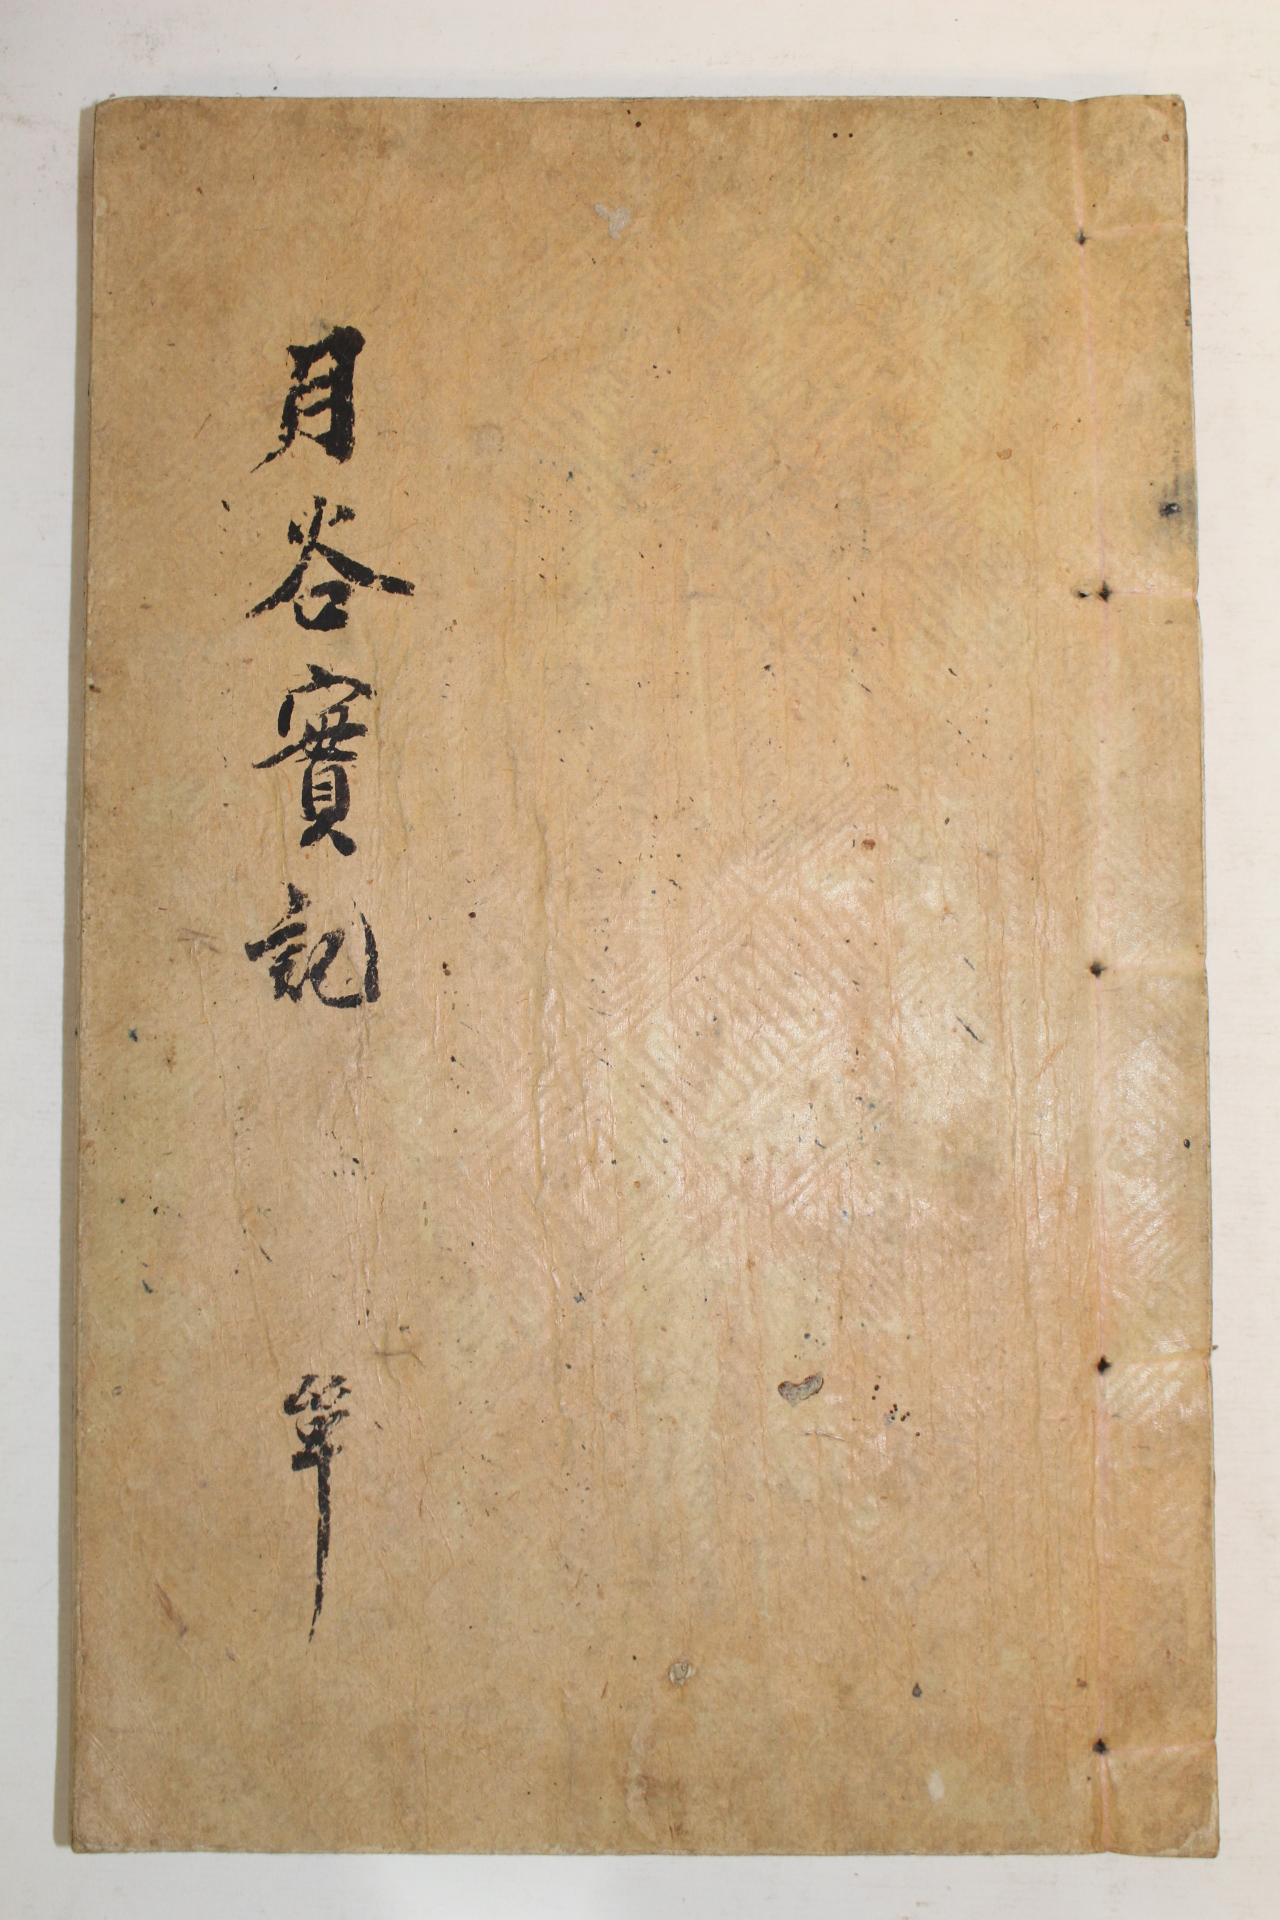 月谷實記 單